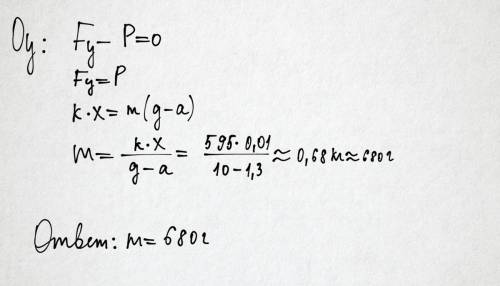 Oy: Fy – P=0
Fy=P
k·x=m(g–a)
m= k·x / g–a = 595·0,01 / 10–1,3 ≈ 0,68 кг ≈ 680 г
Ответ: m= 680 г